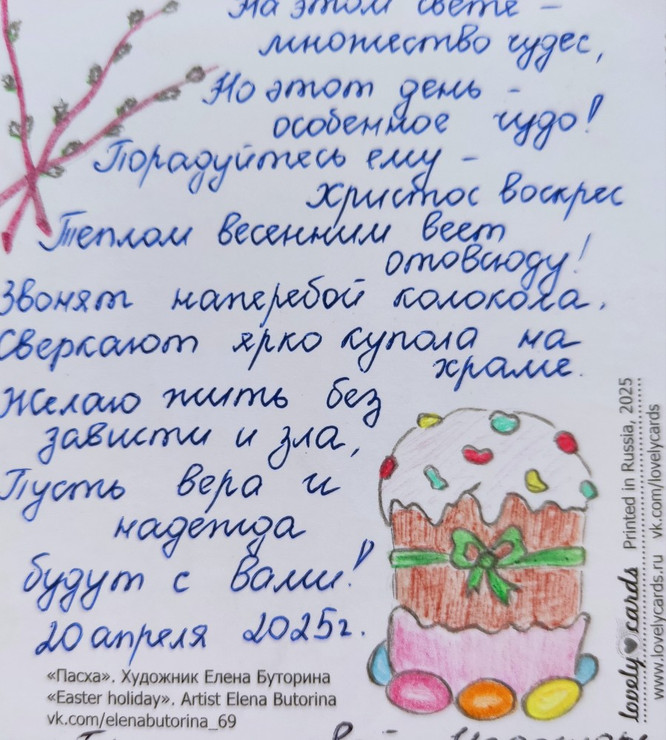 На этом свете –
множество чудес,
Но этот день –
особенное чудо!
Порадуйтесь ему –
Христос воскрес
Теплом весенним веет
отовсюду!
Звонят наперебой колокола.
Сверкают ярко купола на
храме.
Желаю жить без
зависти и зла,
Пусть вера и
надежда
будут с вами!
20 апреля 2025г.
«Пасха». Художник Елена Буторина
«Easter holiday». Artist Elena Butorina
vk.com/elenabutorina_69
lovely cards Printed in Russia, 2025
www.lovelycards.ru vk.com/lovelycards